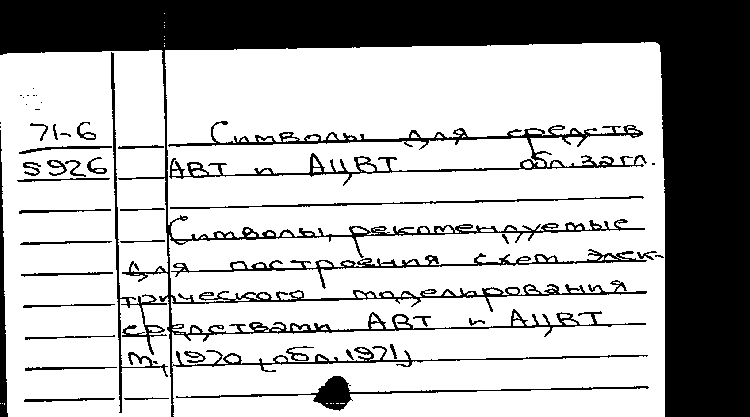 71-6 Символы для средств
5926 АВТ и АЦВТ обл. загл.
Символы, рекомендуемые
для построения схем элек-
трического моделирования
средствами АВТ и АЦВТ
М., 1970 [обл. 1971]